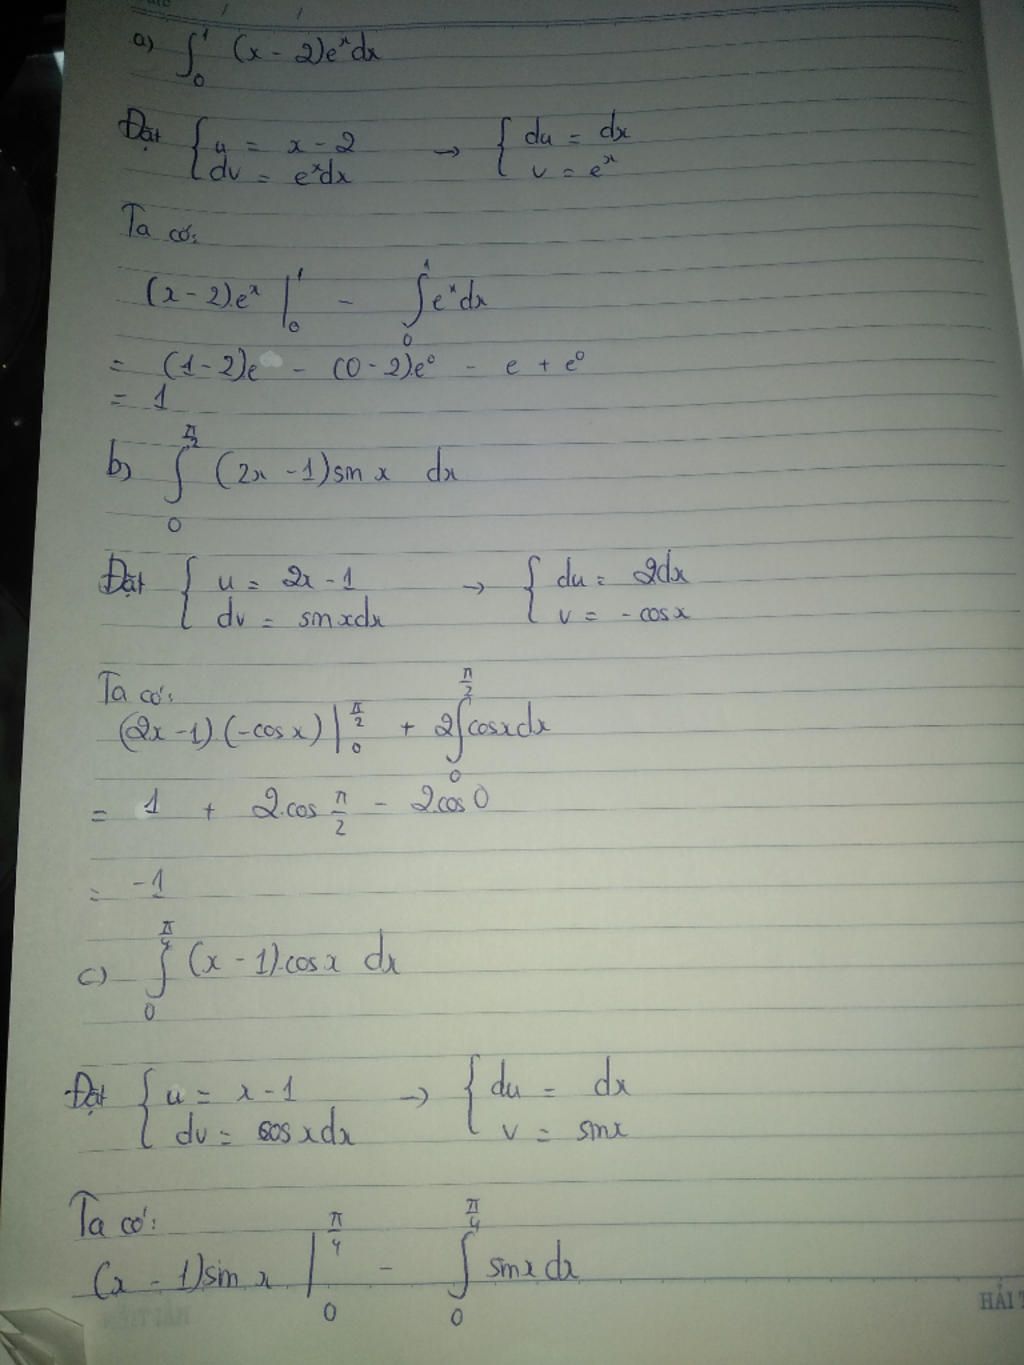 a) ∫₀¹ (x - 2)eˣdx
Đặt { u = x - 2 → { du = dx
dv = eˣdx v = eˣ
Ta có:
(x - 2)eˣ |₀¹ - ∫₀¹ eˣdx
= (1 - 2)e - (0 - 2)e⁰ - e + e⁰
= 1
b) ∫₀^(π/2) (2x - 1)sin x dx
Đặt { u = 2x - 1 → { du = 2dx
dv = sinxdx v = -cosx
Ta có:
(2x - 1).(-cosx) |₀^(π/2) + 2∫₀^(π/2) cosxdx
= 1 + 2.cos π/2 - 2.cos0
= -1
c) ∫₀^(π/4) (x - 1).cosx dx
Đặt { u = x - 1 → { du = dx
dv = cosxdx v = sinx
Ta có:
(x - 1)sin x |₀^(π/4) - ∫₀^(π/4) sinxdx
HẢI